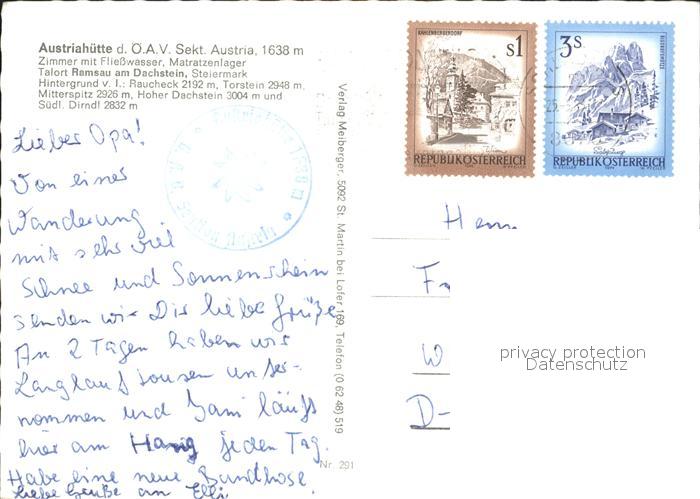 Austriahütte d. Ö.A.V. Sekt. Austria, 1638 m
Zimmer mit Fließwasser, Matratzenlager
Talort Ramsau am Dachstein, Steiermark
Hintergrund v. l.: Raucheck 2192 m, Torstein 2948 m,
Mitterspitz 2926 m, Hoher Dachstein 3004 m und
Südl. Dirndl 2832 m
Lieber Opa!
Von einer
Wanderung
mit sehr viel
Schnee und Sonnenschein
senden wir Dir liebe Grüße.
An 2 Tagen haben wir
Langlauftouren unter-
nommen und Jani läuft
hier am Hang jeden Tag.
Habe eine neue Bundhose.
Liebe Grüße an Elli.
Verlag Meiberger, 5092 St. Martin bei Lofer 169, Telefon (0 62 48) 519
Nr. 291
KAHLENBERGERDORF
s1
REPUBLIK ÖSTERREICH
3s
BISCHOFSMÜTZE
REPUBLIK ÖSTERREICH
Herrn
Fr
W
D-
privacy protection
Datenschutz